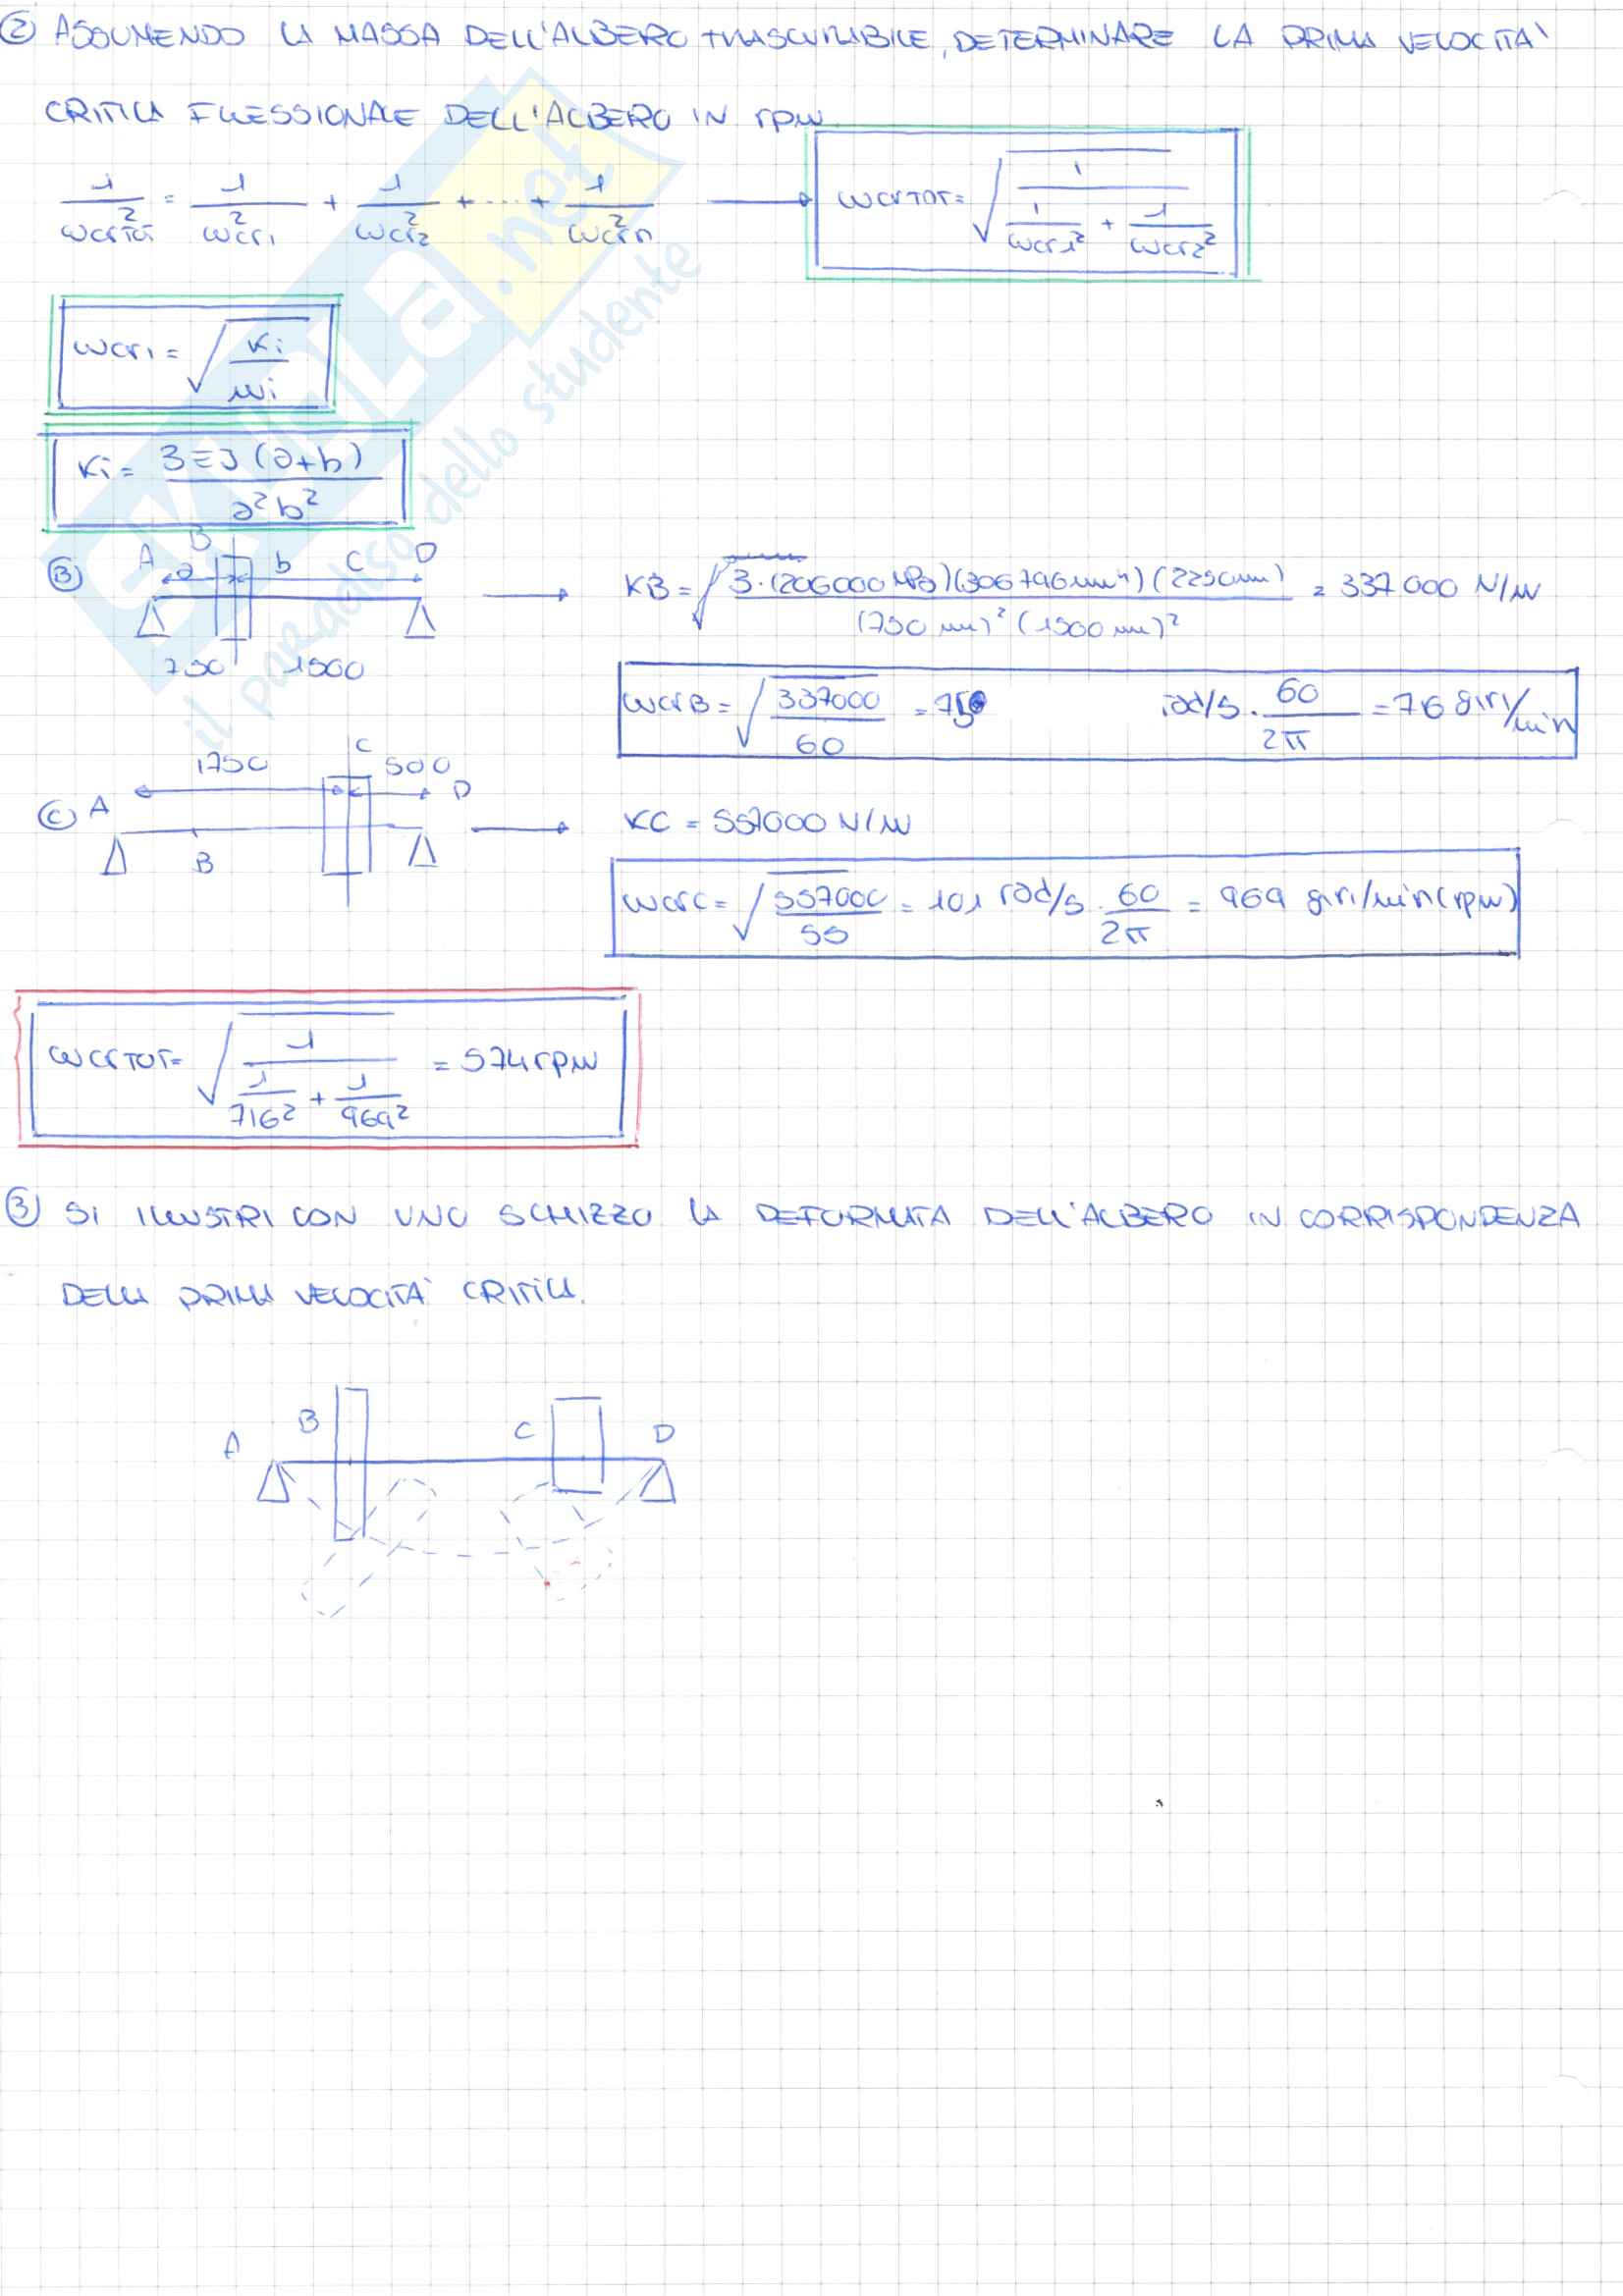 ② ASSUMENDO LA MASSA DELL'ALBERO TRASCURABILE, DETERMINARE LA PRIMA VELOCITA'
CRITICA FLESSIONALE DELL'ALBERO IN rpm
1/ωcrTOT² = 1/ωcr1² + 1/ωcr2² + ... + 1/ωcrn² → ωcrTOT = √(1/(1/ωcr1² + 1/ωcr2²))
ωcri = √(Ki/mi)
Ki = 3EJ(a+b)/a²b²
Ⓑ A a B b C D → KB = √ 3·(206000 MPa)(306796 mm⁴)(2250mm)/(750 mm)²(1500 mm)² = 337000 N/m
750 1500
ωcrB = √(337000/60) = rad/s · 60/2π = 76 giri/min
1750 C 500
Ⓒ A B D → KC = 557000 N/m
ωcrC = √(557000/55) = 101 rad/s · 60/2π = 969 giri/min (rpm)
ωcrTOT = √(1/(1/716² + 1/969²)) = 574 rpm
③ SI ILLUSTRI CON UNO SCHIZZO LA DEFORMATA DELL'ALBERO IN CORRISPONDENZA
DELLA PRIMA VELOCITA' CRITICA.
A B C D
SKUOLA.net
il paradiso dello studente